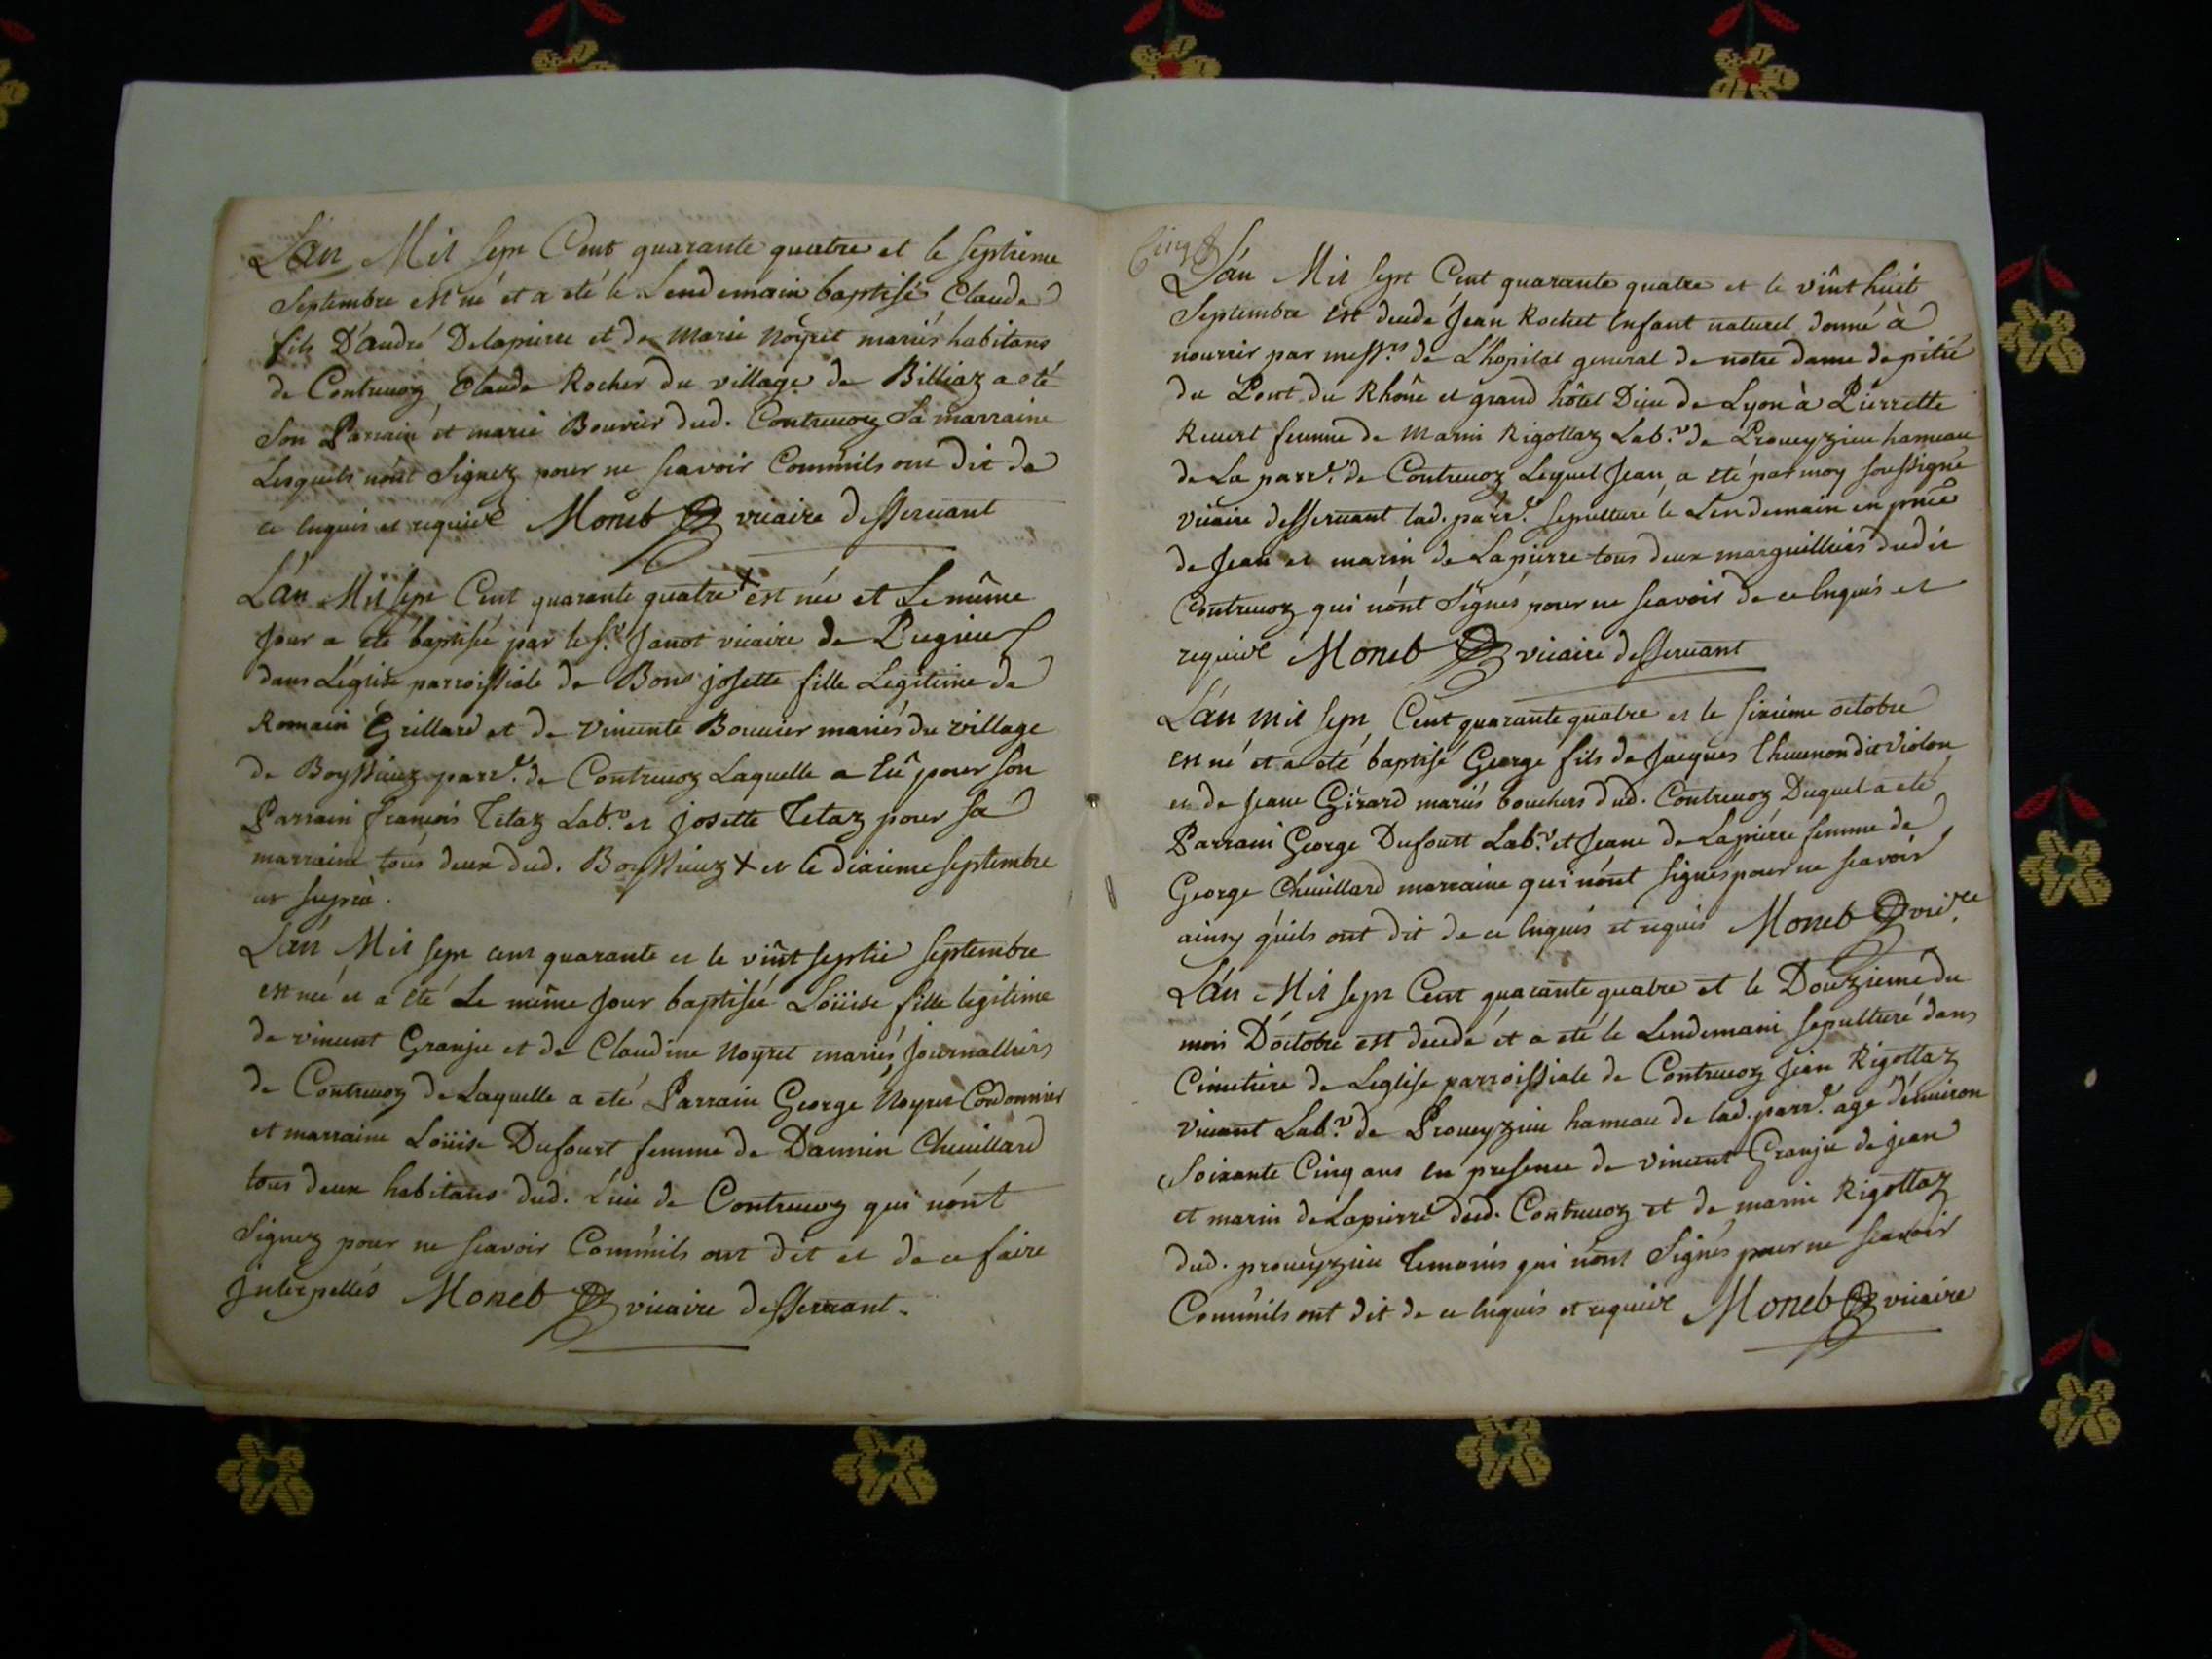 L'an Mil sept Cent quarante quatre et le septieme
Septembre est né et a eté le Lendemain baptisé Claude
fils D'andré Delapierre et de Marie Noyret mariés habitans
de Contrevoz Claude Rocher du village de Billiaz a eté
son Parrain et marie Bouvier dud. Contrevoz Sa marraine
Lesquels n'ont Signez pour ne scavoir Comm'ils ont dit de
ce Enquis et requis Monet vicaire desservant
L'an Mil sept Cent quarante quatre + est née et Le même
Jour a eté baptisée par le Sr. Janot vicaire de Pugieu
dans L'église parroissiale de Bons josette fille Legitime de
Romain Grillard et de vincente Bouvier mariés du village
de Boyssieuz parre. de Contrevoz Laquelle a Eû pour son
Parrain francois Tetaz Labr. et josette Tetaz pour sa
marraine tous deux dud. Boyssieuz + et le dixieme septembre
ut supra.
L'an Mil sept cent quarante et le vint septie septembre
est née et a eté Le même Jour baptisée Loüise fille legitime
de vincent Granje et de Claudine Noyret mariés, Journalliers
de Contrevoz de Laquelle a eté Parrain George Noyret Cordonnier
et marraine Loüise Dufourt femme de Damien Chevillard
tous deux habitans dud. Lieu de Contrevoz qui n'ont
Signez pour ne scavoir Comm'ils ont dit et de ce faire
Interpellés Monet vicaire desservant.
Cinq
L'an Mil sept Cent quarante quatre et le vint huit
Septembre Est decedé Jean Rochet Enfant naturel donné à
nourrir par messrs de L'hopital general de notre dame de pitié
du Pont du Rhône et grand hôtel Dieu de Lyon à Pierrette
Revert femme de Marin Rigottaz Labr. de Proveyzieu hameau
de La parre. de Contrevoz Lequel Jean a eté par moy soussigné
vicaire desservant lad. parre. sepulturé le Lendemain en pnce
de Jean et marin de Lapierre tous deux marguilliers dudit
Contrevoz qui n'ont Signés pour ne scavoir de ce Enquis et
requis Monet vicaire desservant
L'an mil sept Cent quarante quatre et le sixieme octobre
est né et a eté baptisé George fils de Jacques Thevenon dit Violon
et de Jeane Girard mariés bouchers dud. Contrevoz Duquel a eté
Parrain George Dufourt Labr. et Jeane de Lapierre femme de
George Chevillard marraine qui n'ont signés pour ne scavoir
ainsy qu'ils ont dit de ce Enquis et requis Monet vicre
L'an Mil sept Cent quarante quatre et le Douzieme du
mois D'octobre est decedé et a eté le Lendemain sepulturé dans
Cimetiere de Leglise parroissiale de Contrevoz Jean Rigottaz
vivant Labr. de Proveyzieu hameau de lad. parre. agé d'environ
Soixante Cinq ans en presence de vincent Granje de jean
et marin de Lapierre dud. Contrevoz et de marin Rigottaz
dud. proveyzieu Temoins qui n'ont Signés pour ne scavoir
Comm'ils ont dit de ce Enquis et requis Monet vicaire